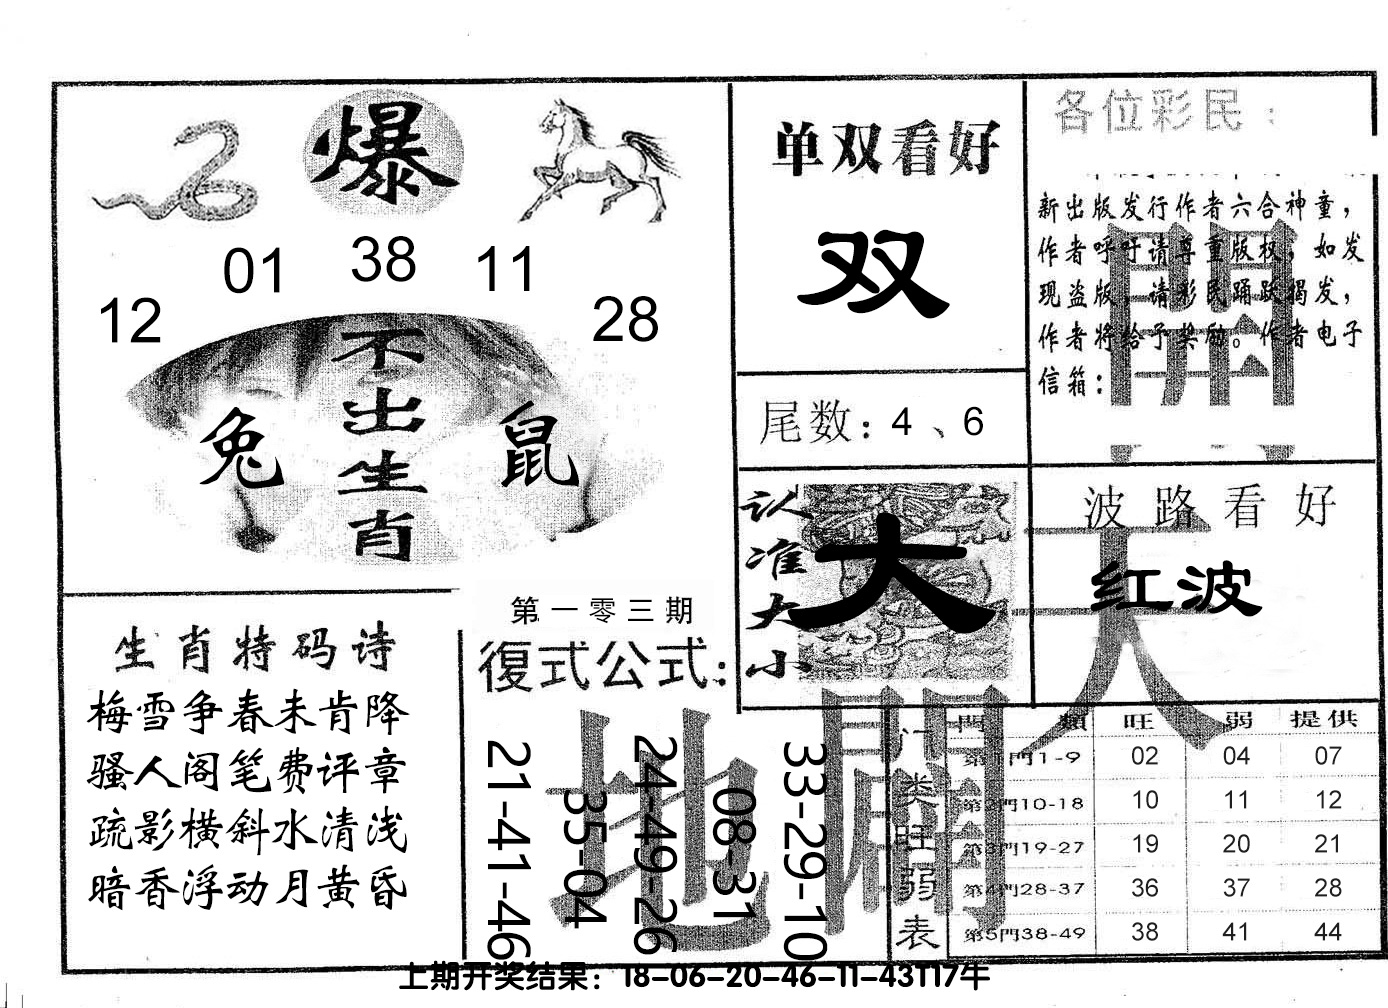 爆
01 38 11
12 28
不出生肖
兔 鼠
单双看好
双
尾数：4、6
认准大小
大
各位彩民：
新出版发行作者六合神童，
作者呼吁请尊重版权，如发
现盗版，请彩民踊跃揭发，
作者将给予奖励。作者电子
信箱：
波路看好
红波
天
開
生肖特码诗
梅雪争春未肯降
骚人阁笔费评章
疏影横斜水清浅
暗香浮动月黄昏
第一零三期
復式公式：
21-41-46
35-04
24-49-26
08-31
33-29-10
地
門類 旺 弱 提供
第1門1-9 02 04 07
第2門10-18 10 11 12
第3門19-27 19 20 21
第4門28-37 36 37 28
第5門38-49 38 41 44
门类旺弱表
上期开奖结果：18-06-20-46-11-43T17牛